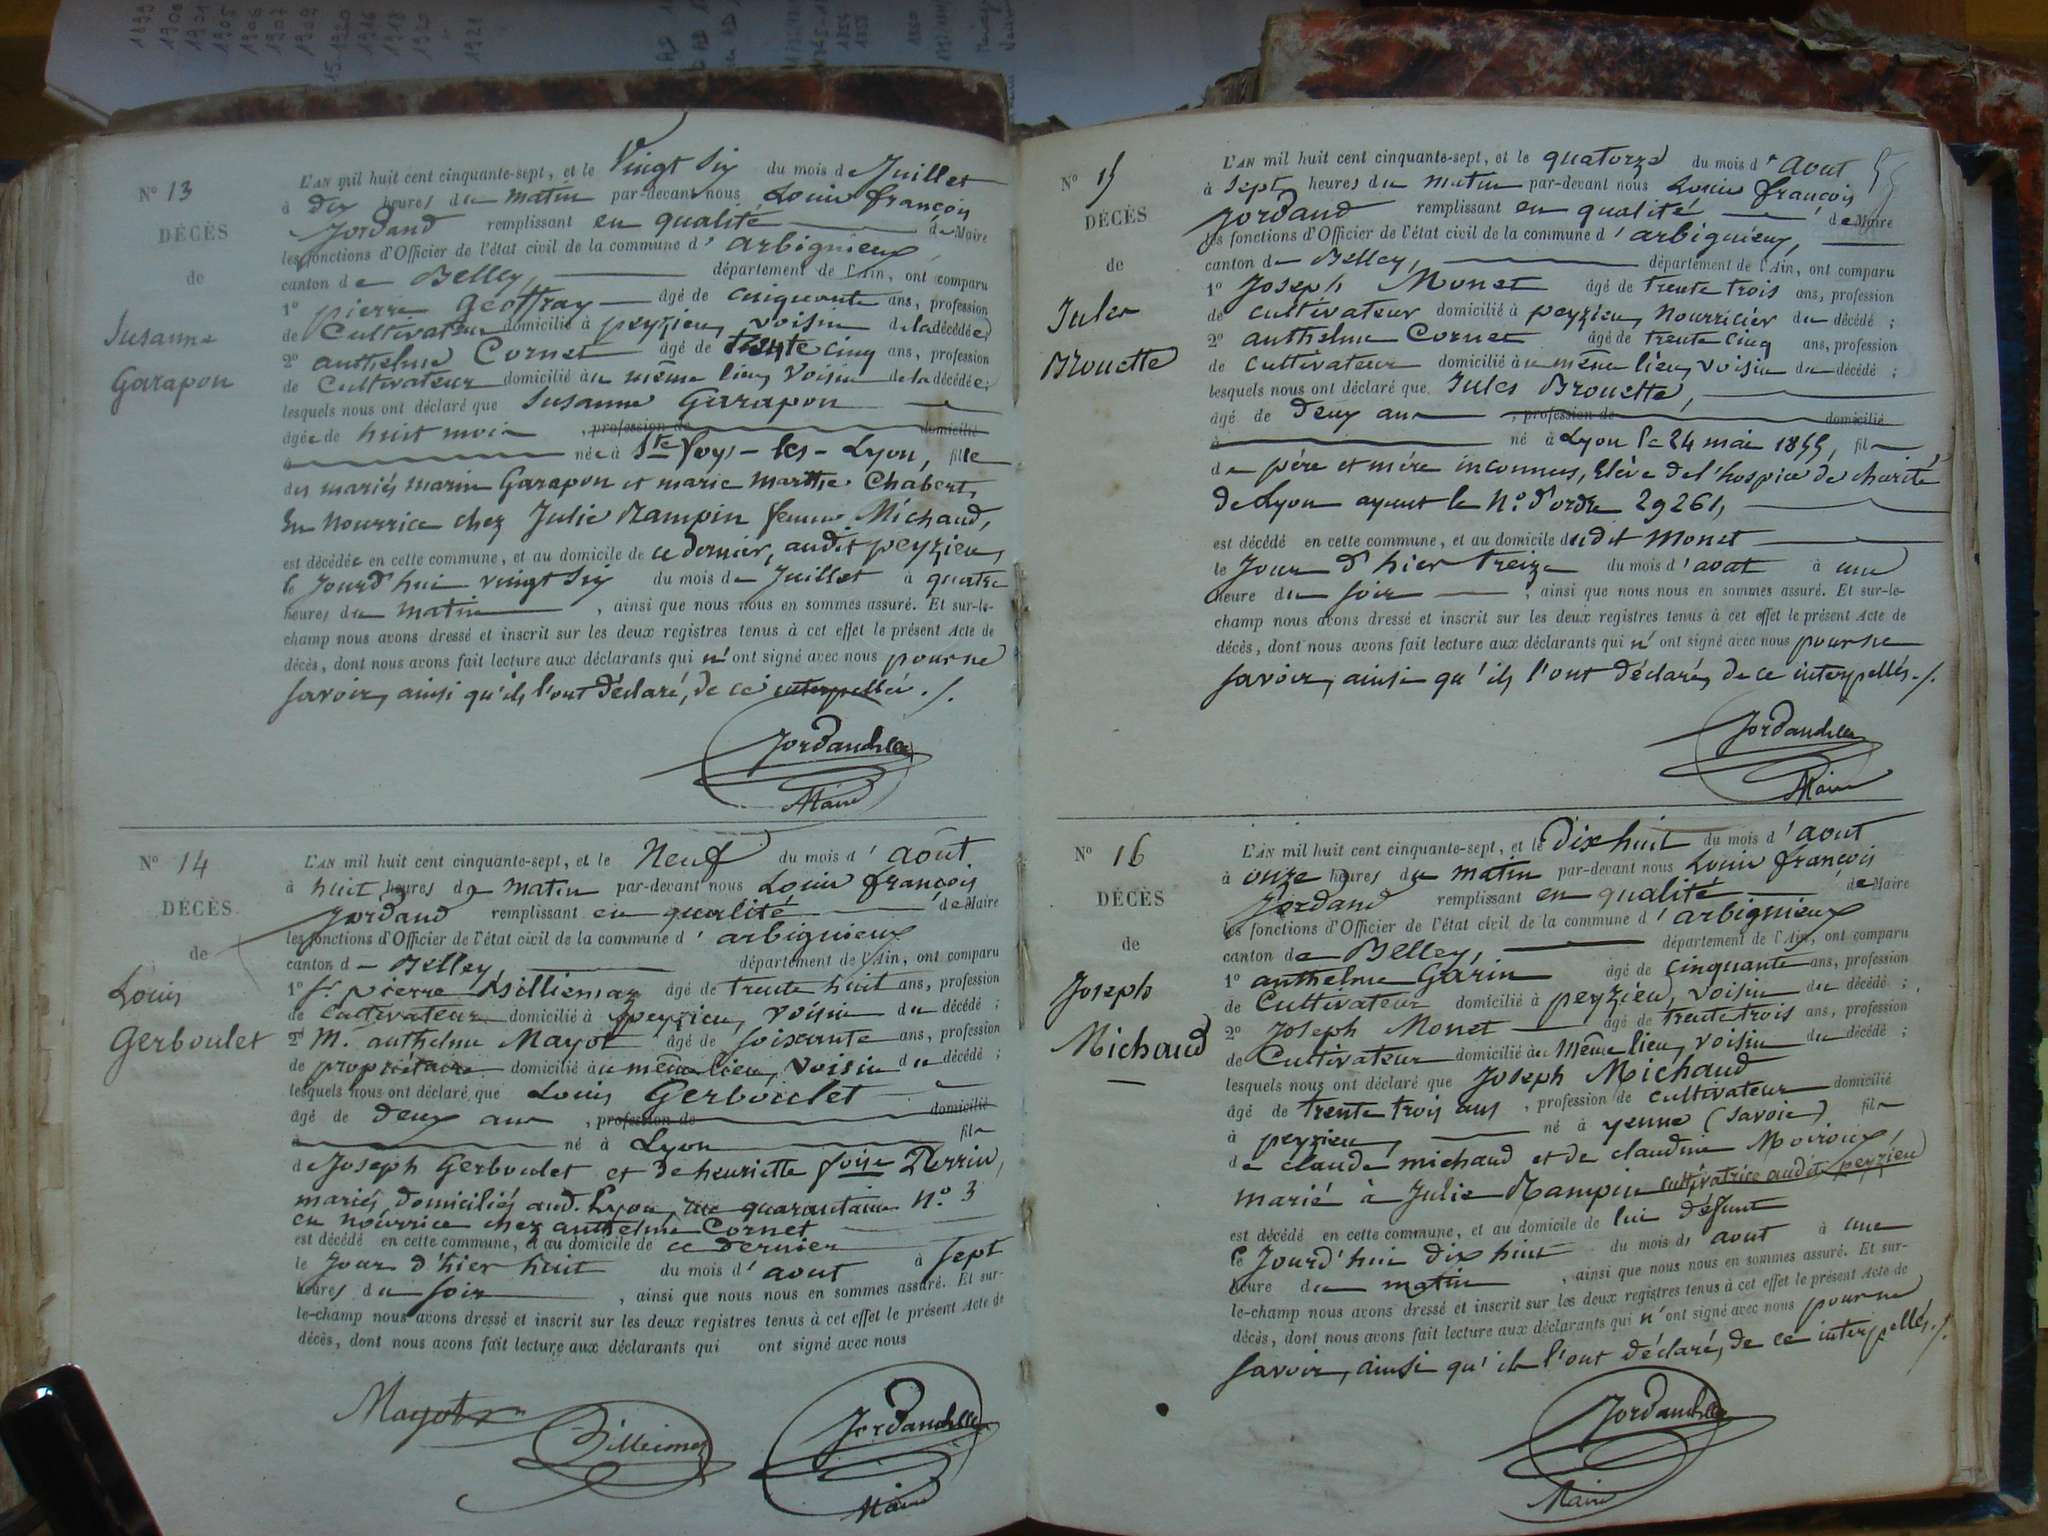 1899
1900
1901
1905
1906
1907
1909
15.1920
1916
1918
1920
1921
N° 13
DÉCÈS
de
Susanne
Garapon
L'AN mil huit cent cinquante-sept, et le Vingt Six du mois de Juillet
à dix heures du matin par-devant nous Louis françois
Jordand remplissant en qualité de Maire
les fonctions d'Officier de l'état civil de la commune d'arbignieux
canton de Belley, département de l'Ain, ont comparu
1° pierre Geoffray âgé de cinquante ans, profession
de Cultivateur domicilié à peyzieu, voisin de la décédée;
2° anthelme Cornet âgé de trente cinq ans, profession
de Cultivateur domicilié au même lieu, voisin de la décédée;
lesquels nous ont déclaré que Susanne Garapon
âgée de huit mois, profession de domicilié
à née à Ste foys-les-Lyon, fille
des mariés marin Garapon et marie marthe Chabert,
En nourrice chez Julie Rampin femme Michaud,
est décédée en cette commune, et au domicile de ce dernier, audit peyzieu,
le Jourd'hui vingt Six du mois de Juillet à quatre
heures du matin, ainsi que nous nous en sommes assuré. Et sur-le-
champ nous avons dressé et inscrit sur les deux registres tenus à cet effet le présent Acte de
décès, dont nous avons fait lecture aux déclarants qui n'ont signé avec nous pour ne
savoir, ainsi qu'ils l'ont déclaré, de ce interpellés./.
Maire
N° 14
DÉCÈS
de
Louis
Gerboulet
L'AN mil huit cent cinquante-sept, et le Neuf du mois d'août.
à huit heures du matin par-devant nous Louis françois
Jordand remplissant en qualité de Maire
les fonctions d'Officier de l'état civil de la commune d'arbignieux
canton de Belley, département de l'Ain, ont comparu
1° Sr. pierre Billiemaz âgé de trente huit ans, profession
de cultivateur domicilié à peyzieu, voisin du décédé;
2° M. anthelme Mayot âgé de soixante ans, profession
de propriétaire domicilié au même lieu, voisin du décédé;
lesquels nous ont déclaré que Louis Gerboulet
âgé de deux ans, profession de domicilié
à né à Lyon fils
de Joseph Gerboulet et de henriette foise Perrin,
mariés, domiciliés aud. Lyon, rue quarantaine N° 3
en nourrice chez anthelme Cornet
est décédé en cette commune, et au domicile de ce dernier
le Jour d'hier huit du mois d'aout à sept
heures du soir, ainsi que nous nous en sommes assuré. Et sur-
le-champ nous avons dressé et inscrit sur les deux registres tenus à cet effet le présent Acte de
décès, dont nous avons fait lecture aux déclarants qui ont signé avec nous
Mayot Billiemaz
Maire
N° 15
DÉCÈS
de
Jules
Brouette
L'AN mil huit cent cinquante-sept, et le quatorze du mois d'aout
à sept heures du matin par-devant nous Louis françois
Jordand remplissant en qualité de Maire
les fonctions d'Officier de l'état civil de la commune d'arbignieux,
canton de Belley, département de l'Ain, ont comparu
1° Joseph Monet âgé de trente trois ans, profession
de cultivateur domicilié à peyzieu, Nourricier du décédé;
2° anthelme Cornet âgé de trente cinq ans, profession
de cultivateur domicilié au même lieu, voisin du décédé;
lesquels nous ont déclaré que Jules Brouette,
âgé de deux ans, profession de domicilié
à né à Lyon le 24 mai 1855, fils
de père et mère inconnus, Elève de l'hospice de charité
de Lyon ayant le N° d'ordre 29261,
est décédé en cette commune, et au domicile dudit Monet
le Jour d'hier treize du mois d'aout à une
heure du soir, ainsi que nous nous en sommes assuré. Et sur-le-
champ nous avons dressé et inscrit sur les deux registres tenus à cet effet le présent Acte de
décès, dont nous avons fait lecture aux déclarants qui n'ont signé avec nous pour ne
savoir, ainsi qu'ils l'ont déclaré, de ce interpellés./.
Maire
N° 16
DÉCÈS
de
Joseph
Michaud
L'AN mil huit cent cinquante-sept, et le Dix huit du mois d'aout
à onze heures du matin par-devant nous Louis françois
Jordand remplissant en qualité de Maire
les fonctions d'Officier de l'état civil de la commune d'arbignieux
canton de Belley, département de l'Ain, ont comparu
1° anthelme Garin âgé de cinquante ans, profession
de Cultivateur domicilié à peyzieu, voisin du décédé;
2° Joseph Monet âgé de trente trois ans, profession
de Cultivateur domicilié au même lieu, voisin du décédé;
lesquels nous ont déclaré que Joseph Michaud
âgé de trente trois ans, profession de cultivateur domicilié
à peyzieu, né à yenne (Savoie) fils
de claude michaud et de claudine Moiroux,
marié à Julie Rampin cultivatrice audit peyzieu
est décédé en cette commune, et au domicile de lui défunt
le Jourd'hui dix huit du mois d'aout à une
heure du matin, ainsi que nous nous en sommes assuré. Et sur-
le-champ nous avons dressé et inscrit sur les deux registres tenus à cet effet le présent Acte de
décès, dont nous avons fait lecture aux déclarants qui n'ont signé avec nous pour ne
savoir, ainsi qu'ils l'ont déclaré, de ce interpellés./.
Maire